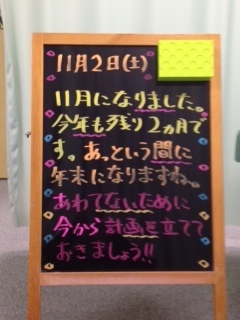 11月2日(土)
11月になりました。
今年も残り2ヵ月で
す。あっという間に
年末になりますね。
あわてないために
今から計画を立てて
おきましょう!!